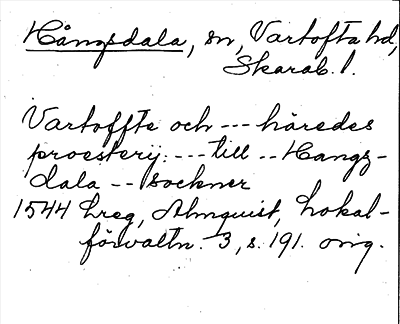 Hångsdala, sn, Vartofta hd,
Skarab. l.
Vartoffte och --- häredes
proesterij: --- till -- Hangs-
dala -- sockner
1544 Lreg, Almquist, Lokal-
förvaltn. 3, s. 191. orig.